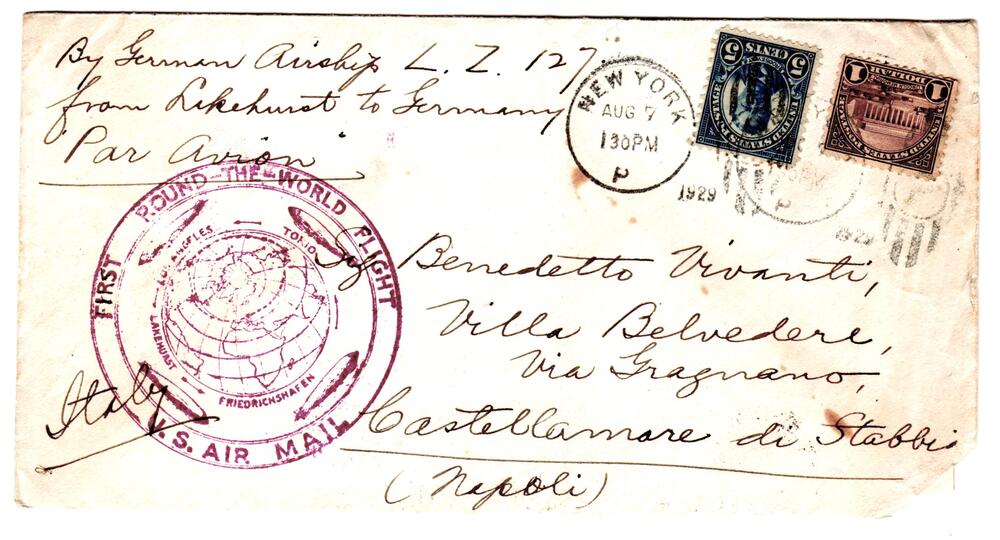 By German Airship L. Z. 127
from Lakehurst to Germany
Par Avion
NEW YORK
AUG 7
130 PM
P
1929
5 CENTS 5
UNITED STATES POSTAGE
1 DOLLAR 1
UNITED STATES POSTAGE
FIRST ROUND-THE-WORLD FLIGHT
LOS ANGELES
TOKIO
LAKEHURST
FRIEDRICHSHAFEN
U.S. AIR MAIL
Benedetto Vivanti,
Villa Belvedere,
Via Gragnano,
Castellamare di Stabbia
(Napoli)
Italy